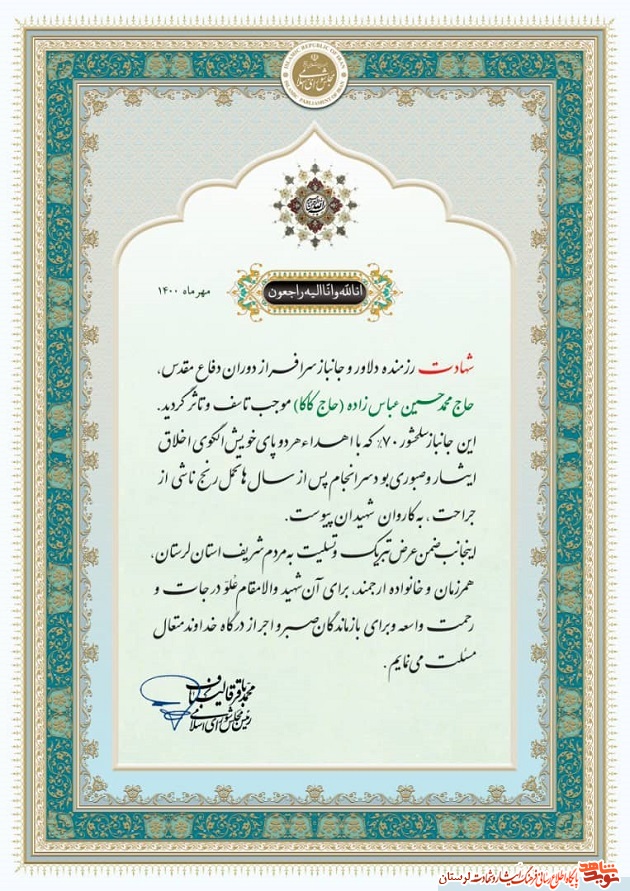 ISLAMIC REPUBLIC OF IRAN
مجلس شورای اسلامی
ISLAMIC PARLIAMENT OF IRAN
انا لله و انا الیه راجعون
مهر ماه ۱۴۰۰
شهادت رزمنده دلاور و جانباز سرافراز دوران دفاع مقدس،
حاج محمدحسین عباس زاده (حاج کاکا) موجب تاسف و تاثر گردید.
این جانباز سلحشور ۷۰٪ که با اهداء هر دو پای خویش الگوی اخلاق
ایثار و صبوری بود سرانجام پس از سال ها تحمل رنج ناشی از
جراحت، به کاروان شهیدان پیوست.
اینجانب ضمن عرض تبریک و تسلیت به مردم شریف استان لرستان،
همرزمان و خانواده ارجمند، برای آن شهید والامقام علوّ درجات و
رحمت واسعه و برای بازماندگان صبر و اجر از درگاه خداوند متعال
مسئلت می نمایم.
محمدباقر قالیباف
رئیس مجلس شورای اسلامی
نوید شاهد پایگاه اطلاع رسانی فرهنگ ایثار و شهادت لرستان